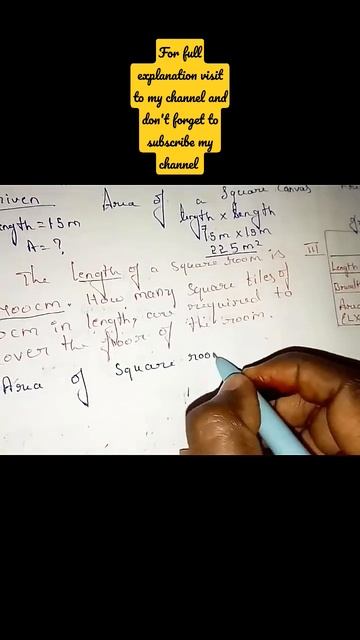 For full
explanation visit
to my channel and
don't forget to
subscribe my
channel
iven
Area of a Square Canvas
ength = 15 m
length x length
A = ?
15 m x 15 m
225 m²
III
The Length of a Square room is
400cm. How many Square tiles of
0cm in length, are required to
over the floor of the room.
Length
Area
Area of Square room